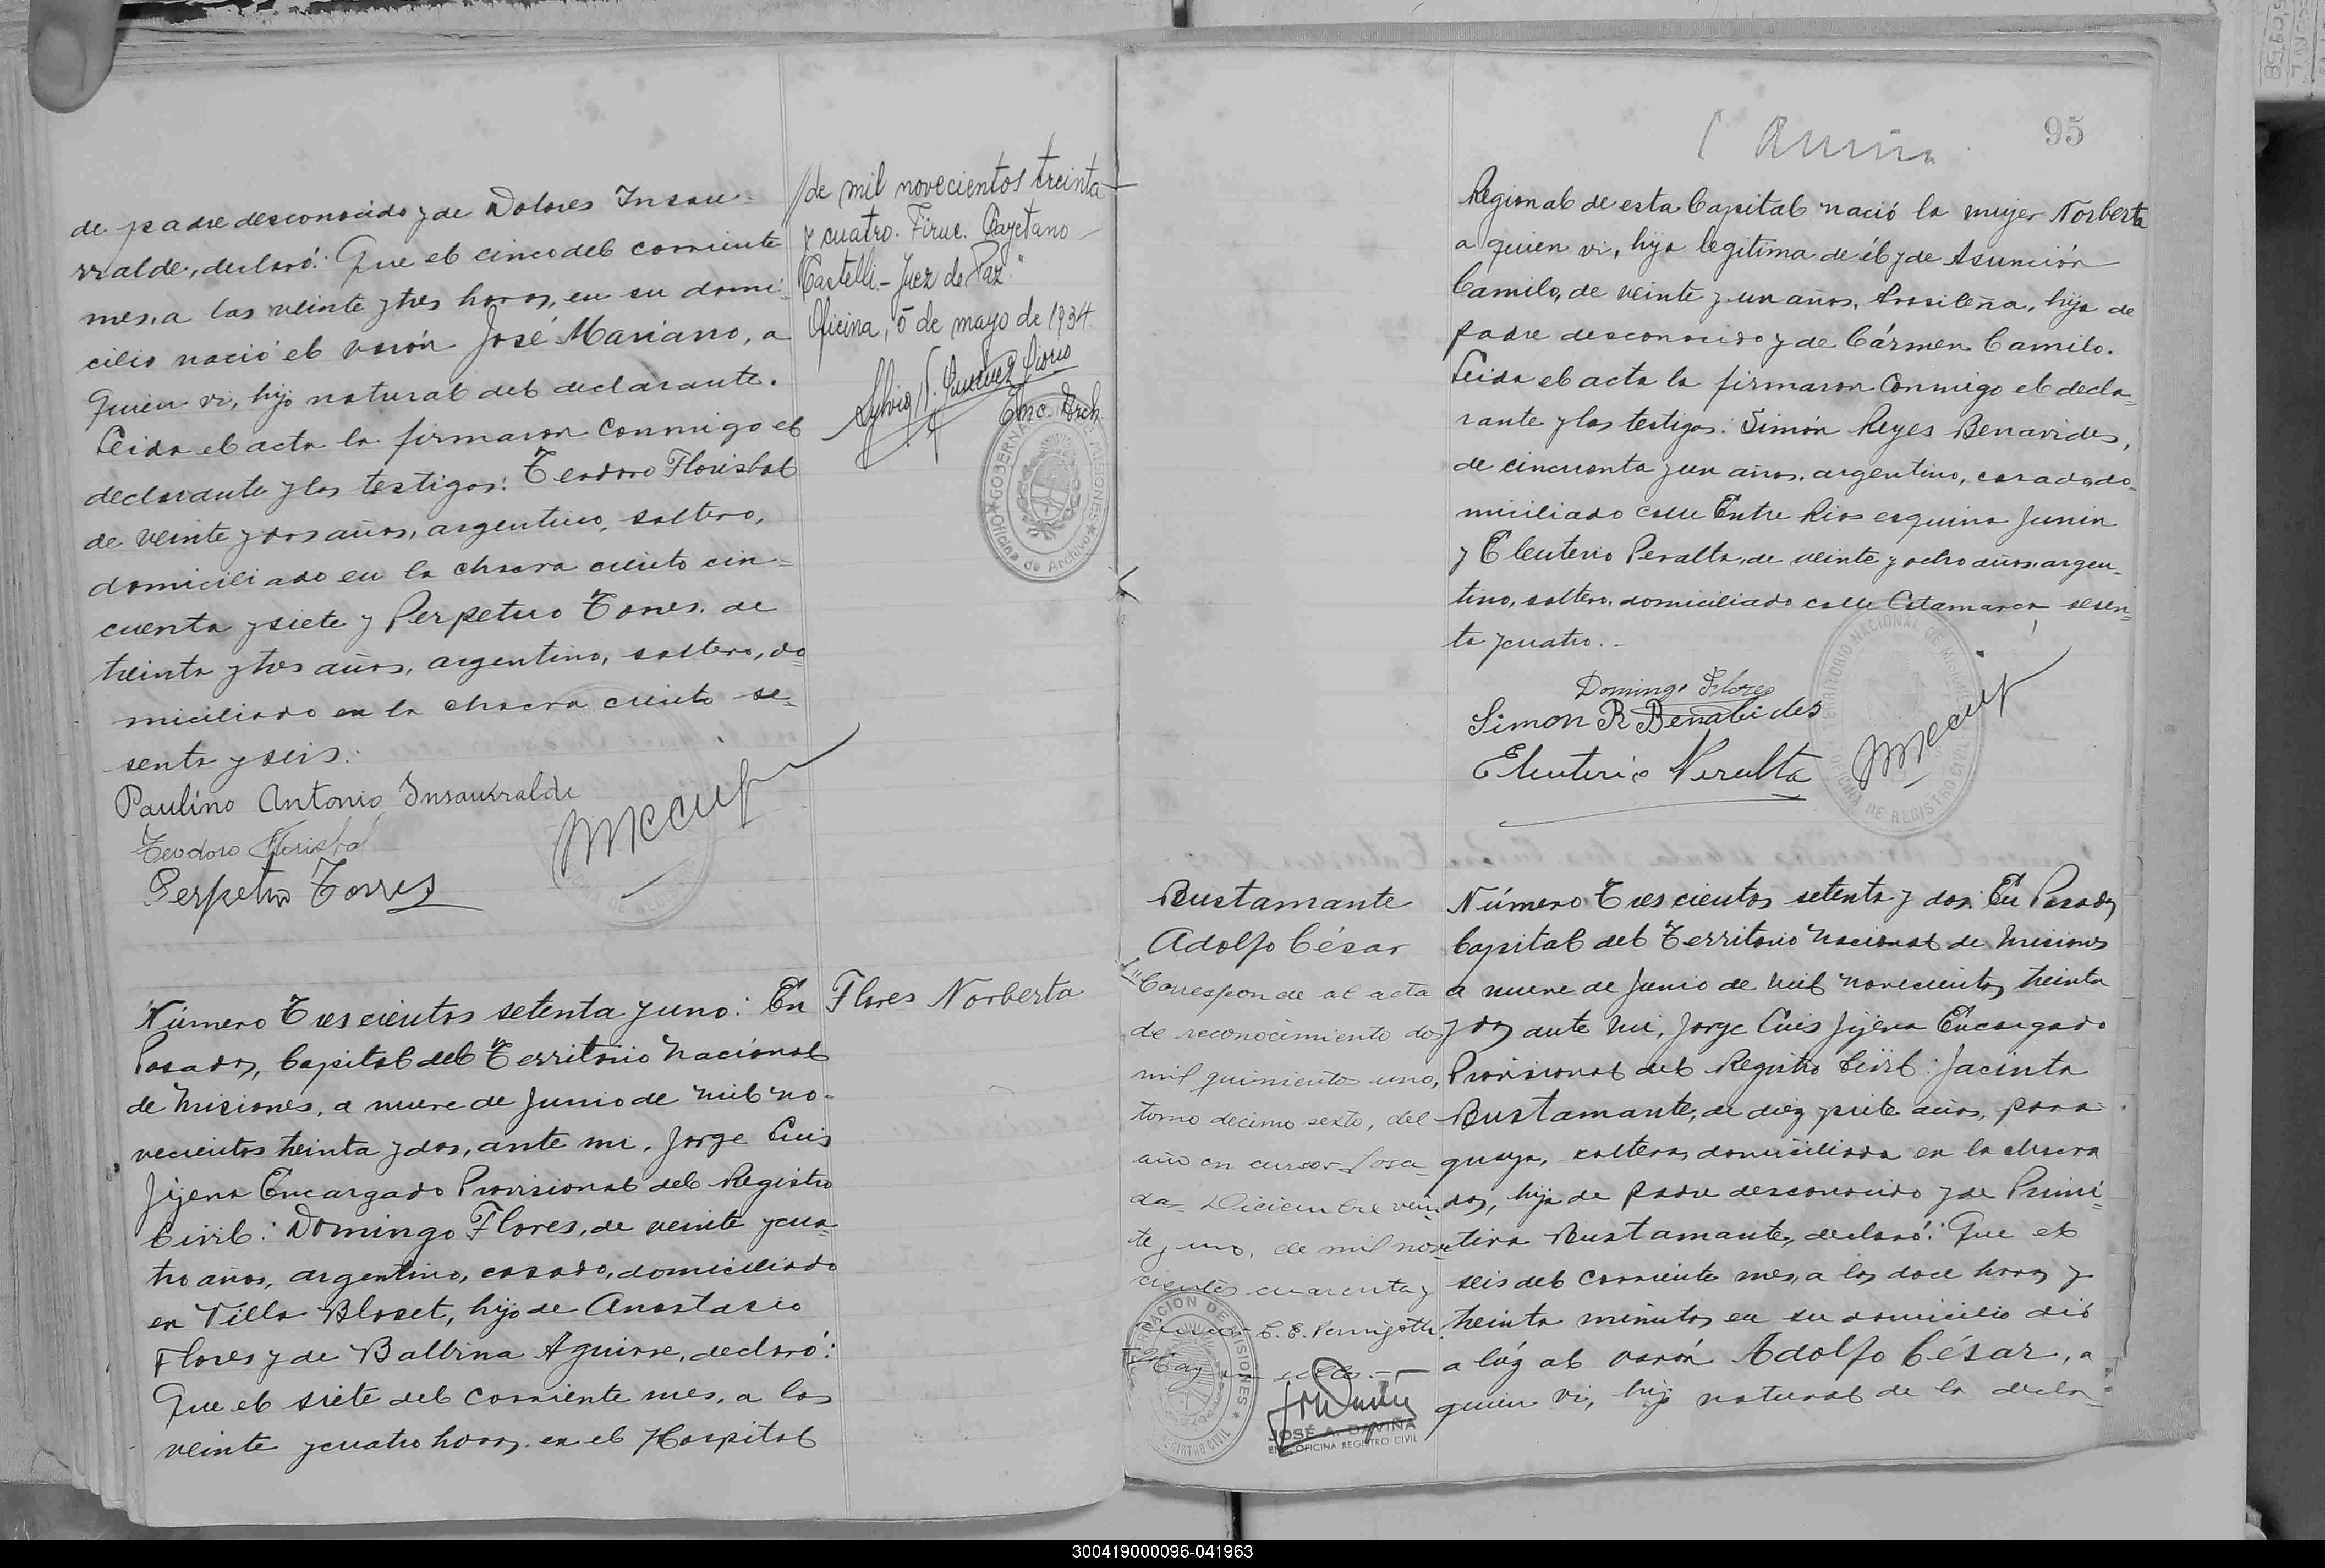 de padre desconocido y de Dolores Insau-
rralde, declaró: Que el cinco del corriente
mes, a las veinte y tres horas, en su domi-
cilio nació el varón José Mariano, a
quien vi, hijo natural del declarante.
Leida el acta la firmaron conmigo el
declarante y los testigos: Teodoro Florisbal
de veinte y dos años, argentino, soltero,
domiciliado en la chacra ciento cin=
cuenta y siete y Perpetuo Torres, de
treinta y tres años, argentino, soltero, do-
miciliado en la chacra ciento se-
senta y seis.
Paulino Antonio Insaurralde
Teodoro Florisbal
Perpetuo Torres
Número Trescientos setenta y uno: En
Posadas, Capital del Territorio Nacional
de Misiones, a nueve de Junio de mil no-
vecientos treinta y dos, ante mi, Jorge Luis
Jijena Encargado Provisional del Registro
Civil: Domingo Flores, de veinte y cua-
tro años, argentino, casado, domiciliado
en Villa Bloset, hijo de Anastacio
Flores y de Balbina Aguirre, declaró:
Que el siete del corriente mes, a las
veinte y cuatro horas, en el Hospital
//de mil novecientos treinta
y cuatro. Firue. Cayetano
Castelli.- Juez de Paz."
Oficina, 5 de mayo de 1934
Enc. Arch.
Oficina de Archivo
Flores Norberta
95
Regional de esta Capital nació la mujer Norberta
a quien vi, hija legitima de él y de Asunción
Camilo, de veinte y un años, brasileña, hija de
padre desconocido y de Cármen Camilo.
Leida el acta la firmaron conmigo el decla-
rante y los testigos: Simón Reyes Benavides,
de cincuenta y un años, argentino, casado, do-
miciliado calle Entre Rios esquina Junin
y Eleuterio Peralta, de veinte y ocho años, argen-
tino, soltero, domiciliado calle Catamarca, sesen-
ta y cuatro.-
Domingo Flores
Simon R Benabides
Eleuterio Peralta
TERRITORIO NACIONAL DE MISIONES
OFICINA DE REGISTRO CIVIL
Bustamante
Adolfo César
"Corresponde al acta
de reconocimiento dos
mil quinientos uno,
tomo decimo sexto, del
año en curso. Posa-
das Diciembre vein-
te y uno, de mil nove-
cientos cuarenta y
GOBERNACION DE MISIONES
REGISTRO CIVIL
JOSÉ A. DAVIÑA
ENC. OFICINA REGISTRO CIVIL
Número Trescientos setenta y dos: En Posadas,
Capital del Territorio Nacional de Misiones
a nueve de Junio de mil novecientos treinta
y dos ante mi, Jorge Luis Jijena Encargado
Provisional del Registro Civil: Jacinta
Bustamante, de diez y siete años, para-
guaya, soltera, domiciliada en la chacra
dos, hija de padre desconocido y de Primi-
tiva Bustamante, declaró: Que el
seis del corriente mes, a las doce horas y
treinta minutos en su domicilio dió
a lúz al varón Adolfo César, a
quien vi, hijo natural de la decla-
300419000096-041963